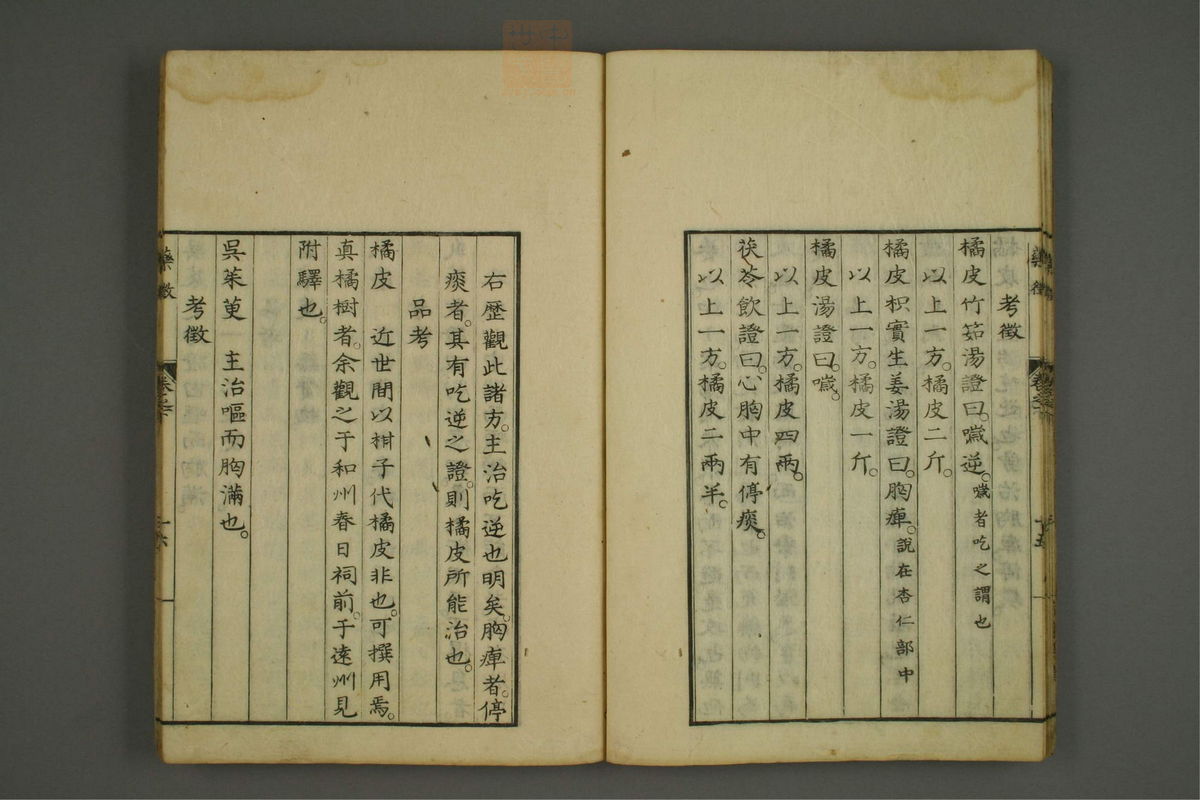 考徵
橘皮竹筎湯證曰。噦逆。噦者吃之謂也
以上一方。橘皮二斤。
橘皮枳實生姜湯證曰。胸痺。說在杏仁部中
以上一方。橘皮一斤。
橘皮湯證曰。噦。
以上一方。橘皮四兩。
茯苓飲證曰。心胸中有停痰。
以上一方。橘皮二兩半。
右歷觀此諸方。主治吃逆也明矣。胸痺者。停
痰者。其有吃逆之證。則橘皮所能治也。
品考
橘皮 近世間以柑子代橘皮非也。可撰用焉。
真橘樹者。余觀之于和州春日祠前。于遠州見
附驛也。
吳茱萸 主治嘔而胸滿也。
考徵
藥徵